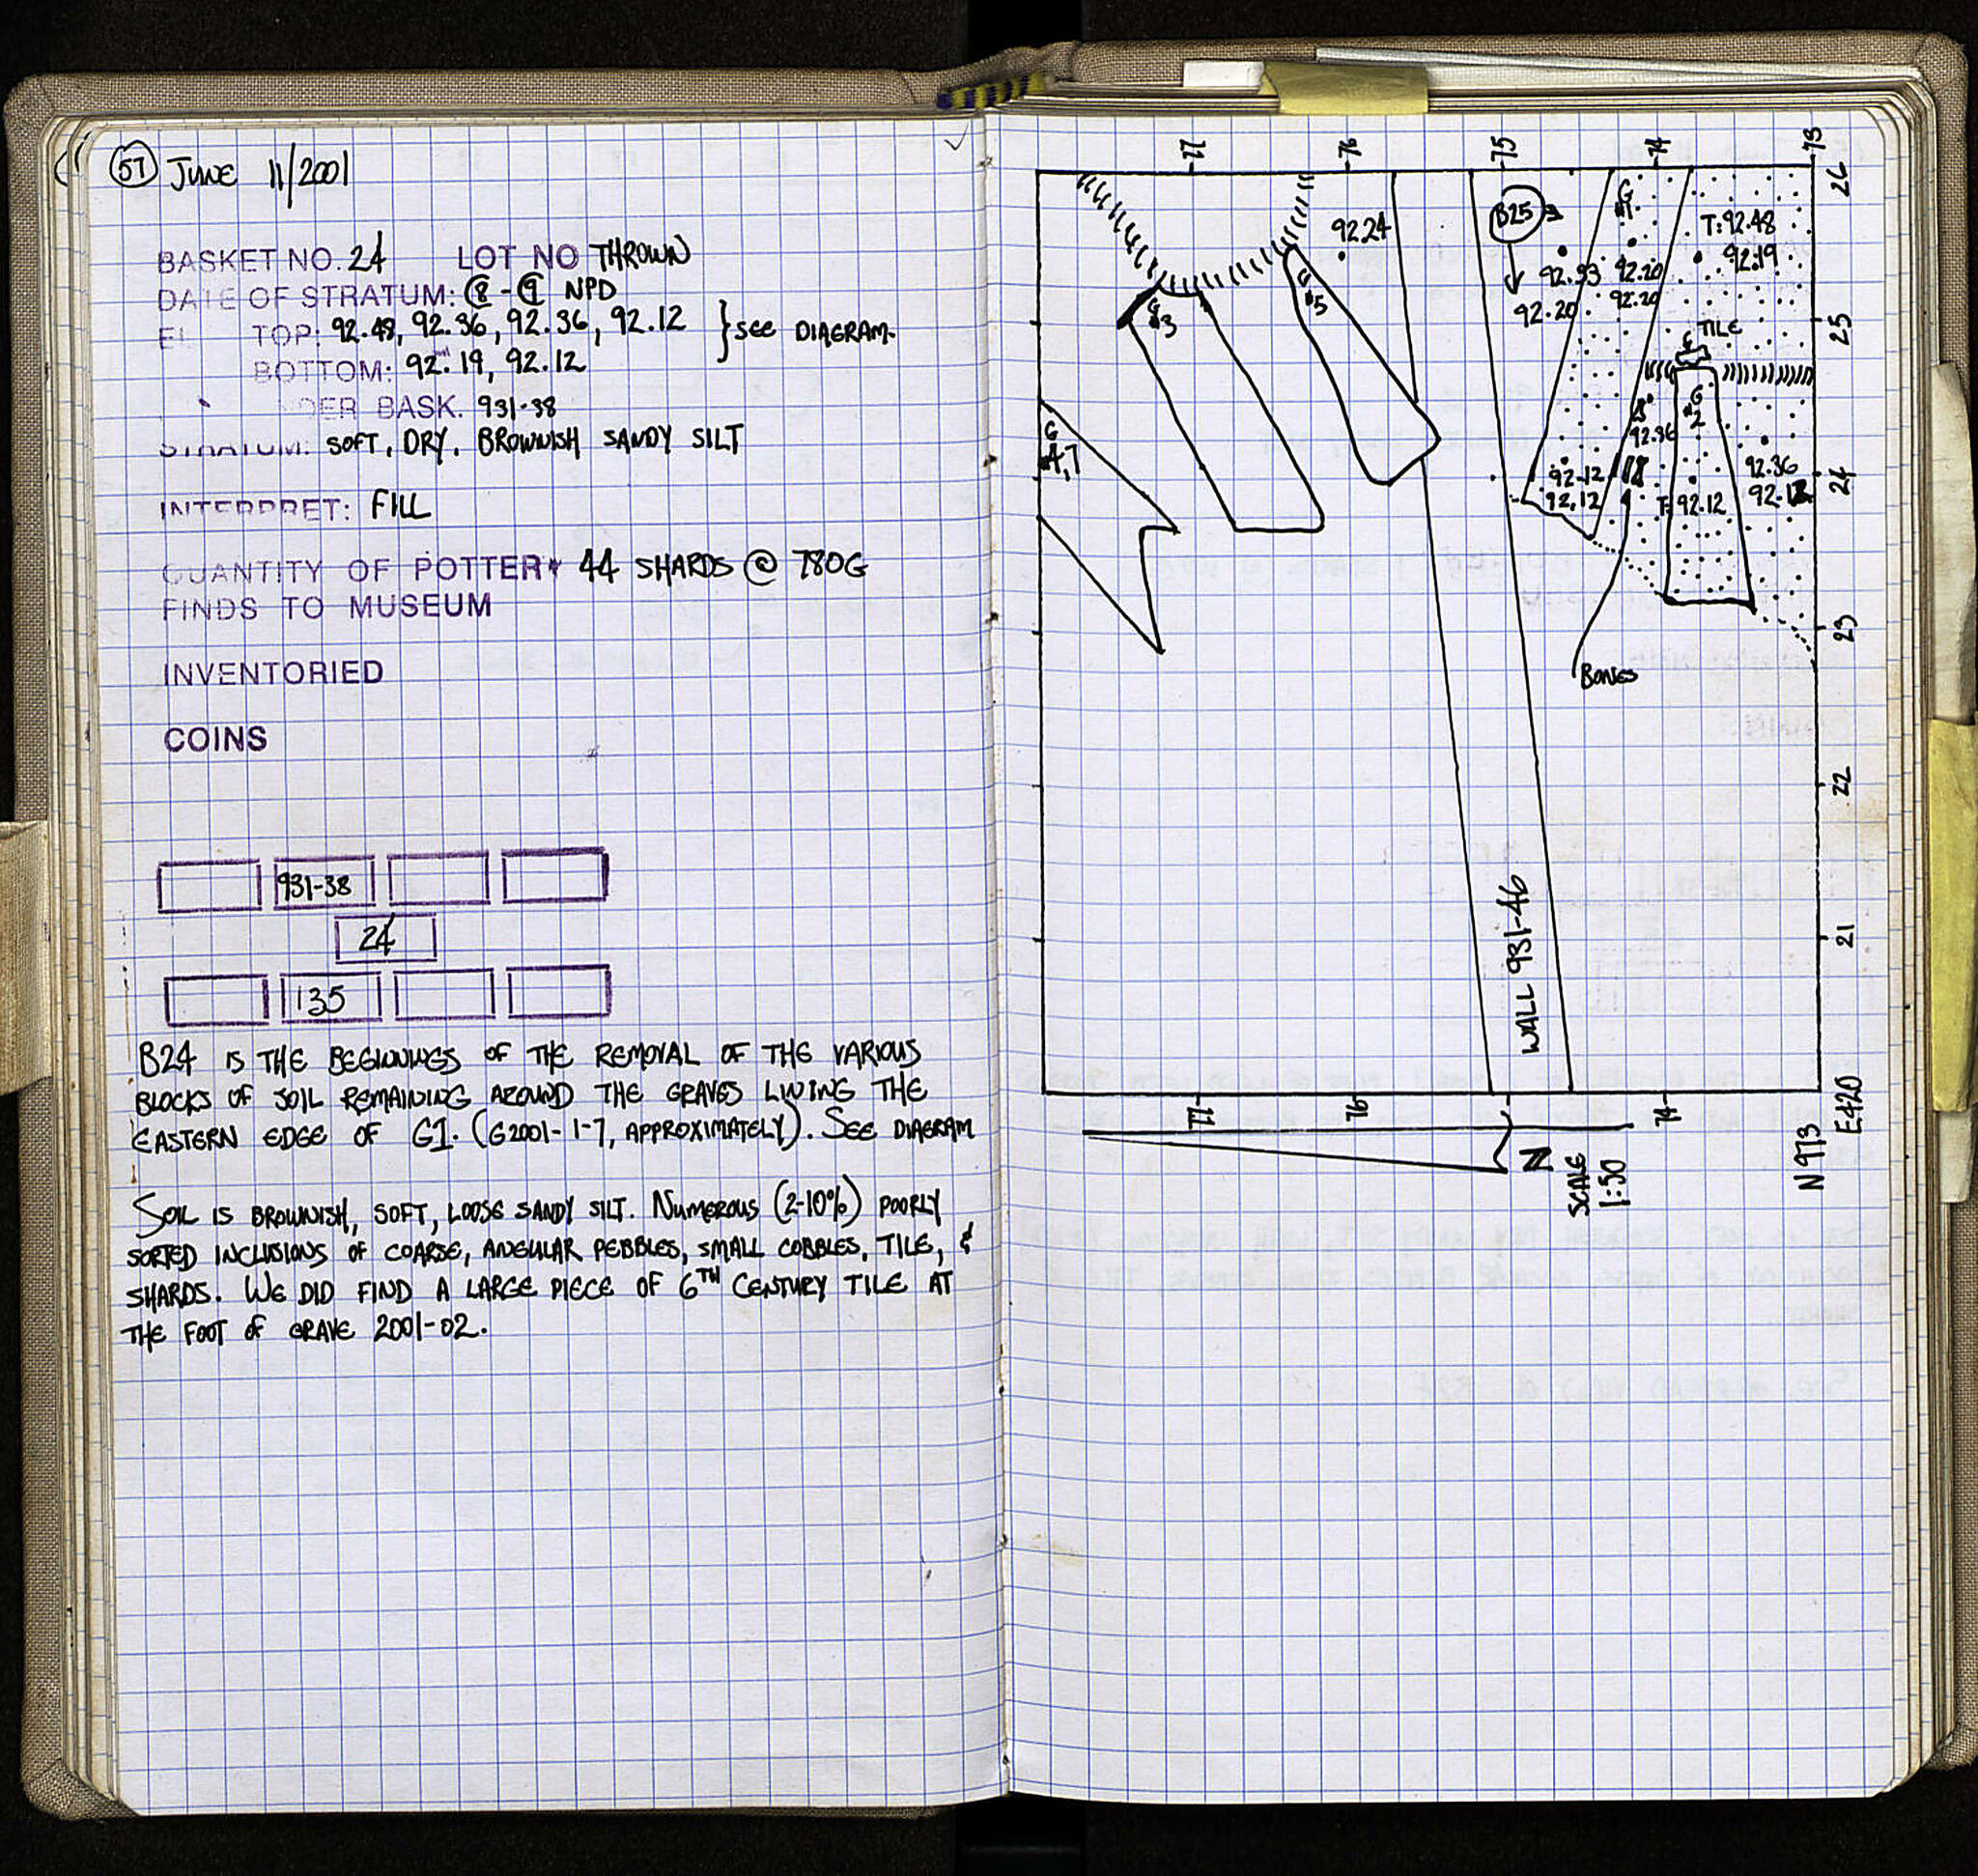 57 JUNE 11/2001
BASKET NO. 24 LOT NO THROWN
DATE OF STRATUM: @ 8 - 9 NPD
EL TOP: 92.48, 92.36, 92.36, 92.12 } SEE DIAGRAM.
BOTTOM: 92.19, 92.12
DER BASK. 931-38
STRATUM: SOFT, DRY, BROWNISH SANDY SILT
INTERPRET: FILL
QUANTITY OF POTTERY 44 SHARDS @ 780G
FINDS TO MUSEUM
INVENTORIED
COINS
931-38
24
135
B24 IS THE BEGINNINGS OF THE REMOVAL OF THE VARIOUS
BLOCKS OF SOIL REMAINING AROUND THE GRAVES LINING THE
EASTERN EDGE OF G1. (G2001-1-7, APPROXIMATELY). SEE DIAGRAM
SOIL IS BROWNISH, SOFT, LOOSE SANDY SILT. NUMEROUS (2-10%) POORLY
SORTED INCLUSIONS OF COARSE, ANGULAR PEBBLES, SMALL COBBLES, TILE, &
SHARDS. WE DID FIND A LARGE PIECE OF 6TH CENTURY TILE AT
THE FOOT OF GRAVE 2001-02.
77 76 75 74 73
26
B25
G #1
T: 92.48
92.24
92.19
92.33 92.20
92.20 92.20
G #3
G #5
25
TILE
G #2
G #4,7
92.36
92.36
24
92.12
92.12
T: 92.12
92.12
23
BONES
22
21
WALL 931-46
77 76 74
N
SCALE
1:50
N 973
E420